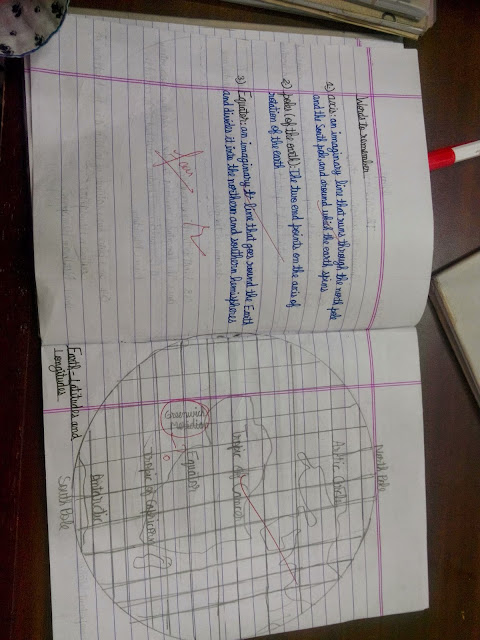 Word to remember
1) axis: an imaginary line that runs through the north pole
and the South pole, and around which the earth spins
2) poles (of the earth): The two end points on the axis of
rotation of the earth
3) Equator: an imaginary line that goes round the Earth
and divides it into the northern and southern hemispheres
North Pole
Arctic Circle
Tropic of Cancer
Greenwich
Meridian
Equator
0
Tropic of Capricorn
Antarctic
South Pole
Earth - Latitudes and
Longitudes